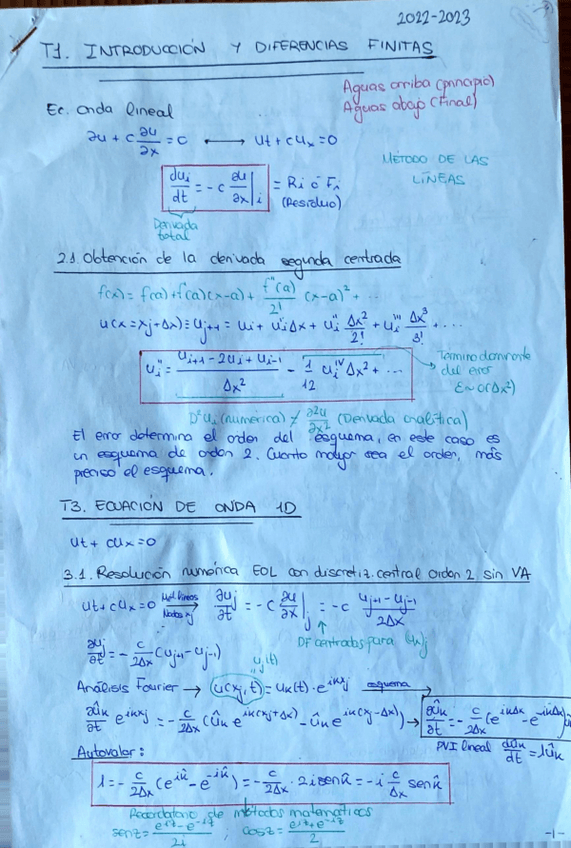 2022-2023
T1. INTRODUCCIÓN Y DIFERENCIAS FINITAS
Aguas arriba (principio)
Aguas abajo (Final)
Ec. onda lineal
∂u + c ∂u/∂x = c ⟷ ut + cux = 0
MÉTODO DE LAS LÍNEAS
dui/dt = -c ∂u/∂x|i = Ri ó Fi
(Residuo)
Derivada total
2.1. Obtención de la derivada segunda centrada
f(x) = f(a) + f'(a)(x-a) + f''(a)/2! (x-a)² + ...
u(x = xj + Δx) ≡ uj+1 = ui + ui' Δx + ui'' Δx²/2! + ui''' Δx³/3! + ...
ui'' = (ui+1 - 2ui + ui-1)/Δx² - 1/12 ui^IV Δx² + ...
Término dominante del error
ε ~ o(Δx²)
D²ui (numérica) ≠ ∂²u/∂x² (Derivada analítica)
El error determina el orden del esquema, en este caso es
un esquema de orden 2. Cuanto mayor sea el orden, más
preciso el esquema.
T3. ECUACIÓN DE ONDA 1D
ut + cux = 0
3.1. Resolución numérica EOL con discretiz. central orden 2 sin VA
ut + cux = 0 → Met. líneas Nodos xj ∂uj/∂t = -c ∂u/∂x|j = -c (uj+1 - uj-1)/2Δx
DF centradas para
∂uj/∂t = -c/2Δx (uj+1 - uj-1)
uj(t)
Análisis Fourier → u(xj, t) = ûk(t) · e^ikxj esquema →
∂ûk/∂t e^ikxj = -c/2Δx (ûk e^ik(xj+Δx) - ûk e^ik(xj-Δx)) → ∂ûk/∂t = -c/2Δx (e^ikΔx - e^-ikΔx) ûk
PVI lineal dûk/dt = λûk
Autovalor:
λ = -c/2Δx (e^ik̂ - e^-ik̂) = -c/2Δx · 2i sen k̂ = -i c/Δx sen k̂
Recordatorio de métodos matemáticos
sen z = (e^iz - e^-iz)/2i ; cos z = (e^iz + e^-iz)/2
-1-